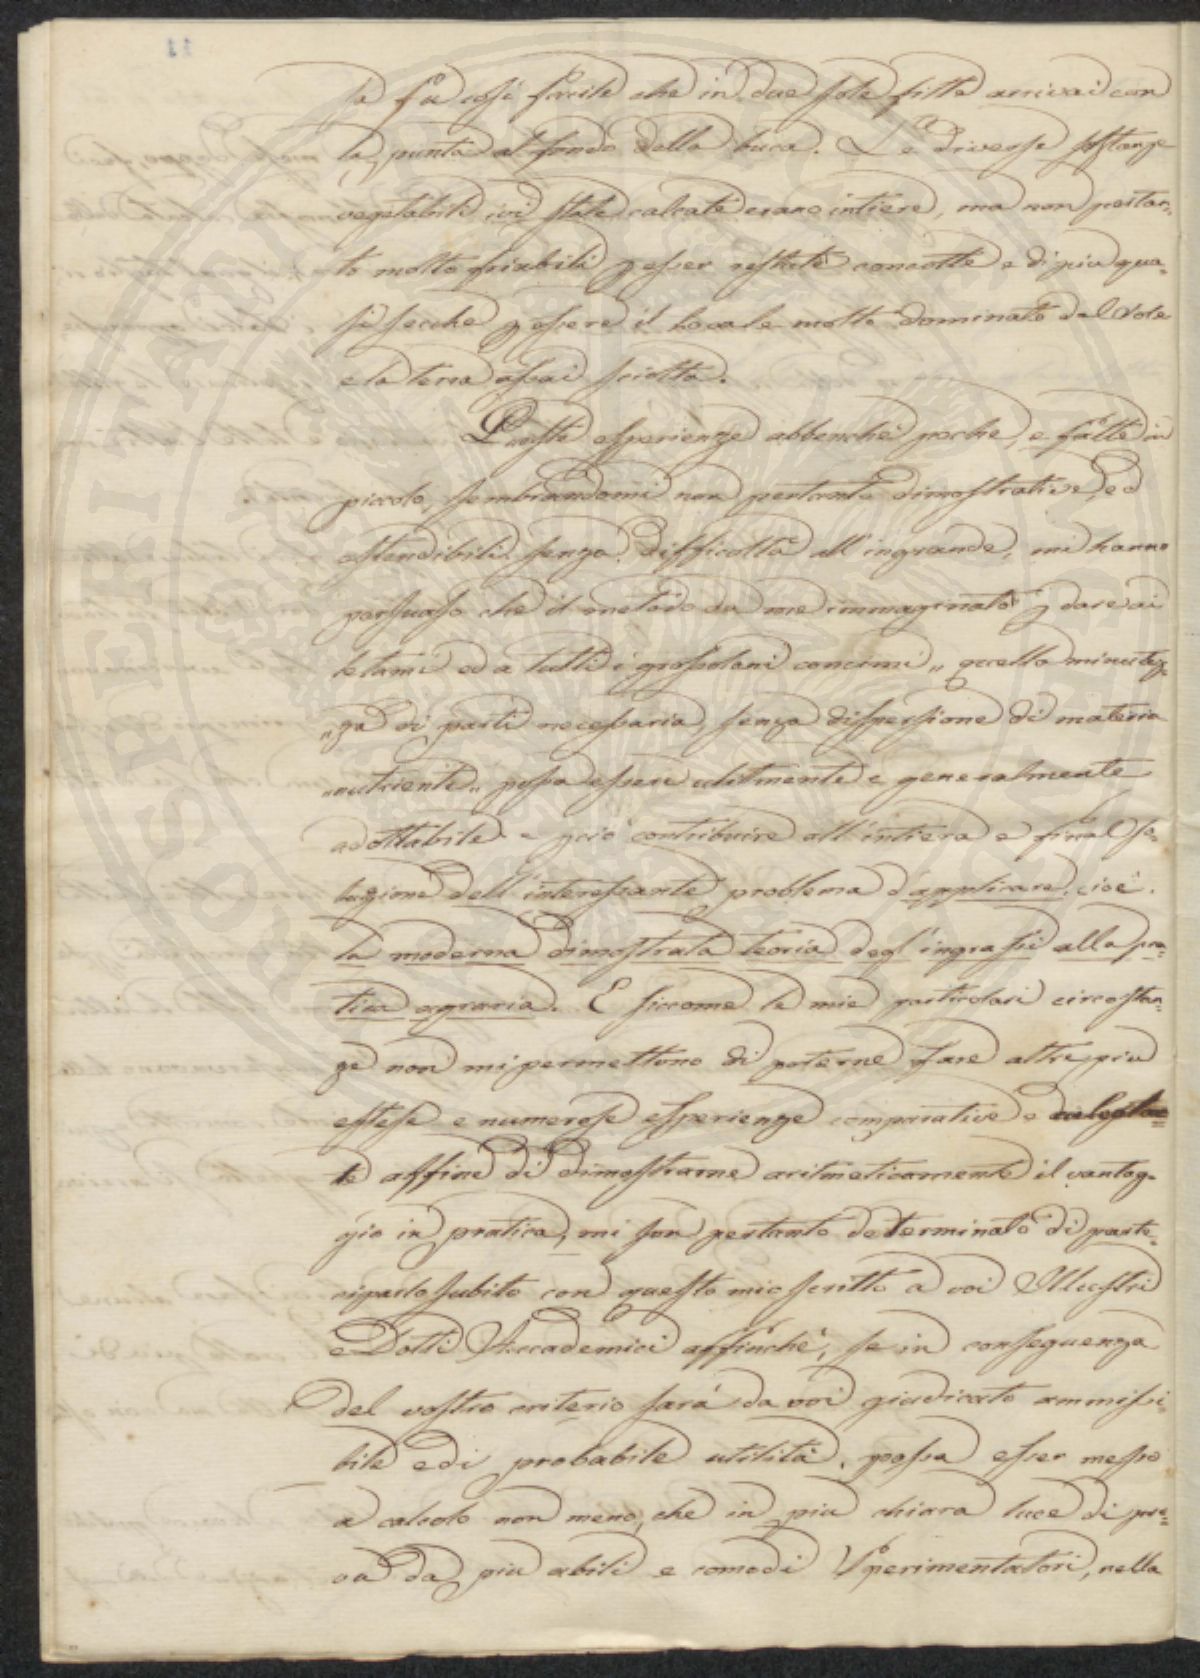 sa fu così facile che in due sole fitte arrivai con
la punta al fondo della buca. Le diverse sostanze
vegetabili ivi state calcate erano intiere, ma non pertan=
to molto friabili p esser restate concotte e di più qua=
si secche p essere il locale molto dominato dal Sole
e la terra assai sciolta.
Queste esperienze abbenchè poche, e fatte in
piccolo, sembrandomi non pertanto dimostrative, ed
estendibili senza difficoltà all'ingrande, mi hanno
persuaso che il metodo da me immaginato p dare ai
letami ed a tutti i grossolani concimi „ quella minutez=
„za di parti necessaria, senza dispersione di materia
„nutriente„ possa essere utilmente e generalmente
adottabile e pciò contribuire all'intiera e final so=
luzione dell'interessante problema d'applicare, cioè
la moderna dimostrata teoria degl'ingrassi alla pra=
tica agraria. E siccome le mie particolari circostan=
ze non mi permettono di poterne fare altre più
estese e numerose esperienze comparative e
te affine di dimostrarne aritmeticamente il vantag=
gio in pratica, mi son pertanto determinato di parte=
ciparlo subito con questo mio scritto a voi Illustri
e Dotti Accademici affinchè, se in conseguenza
del vostro criterio sarà da voi giudicato ammissi=
bile e di probabile utilità, possa esser messo
a calcolo non meno, che in più chiara luce di pro=
va da più abili e comodi Sperimentatori, nella
PROSPERITATI PUBLICAE AUGENDAE
11